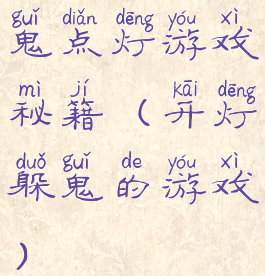 guǐ diǎn dēng yóu xì
鬼点灯游戏
mì jí kāi dēng
秘籍（开灯
duǒ guǐ de yóu xì
躲鬼的游戏
）